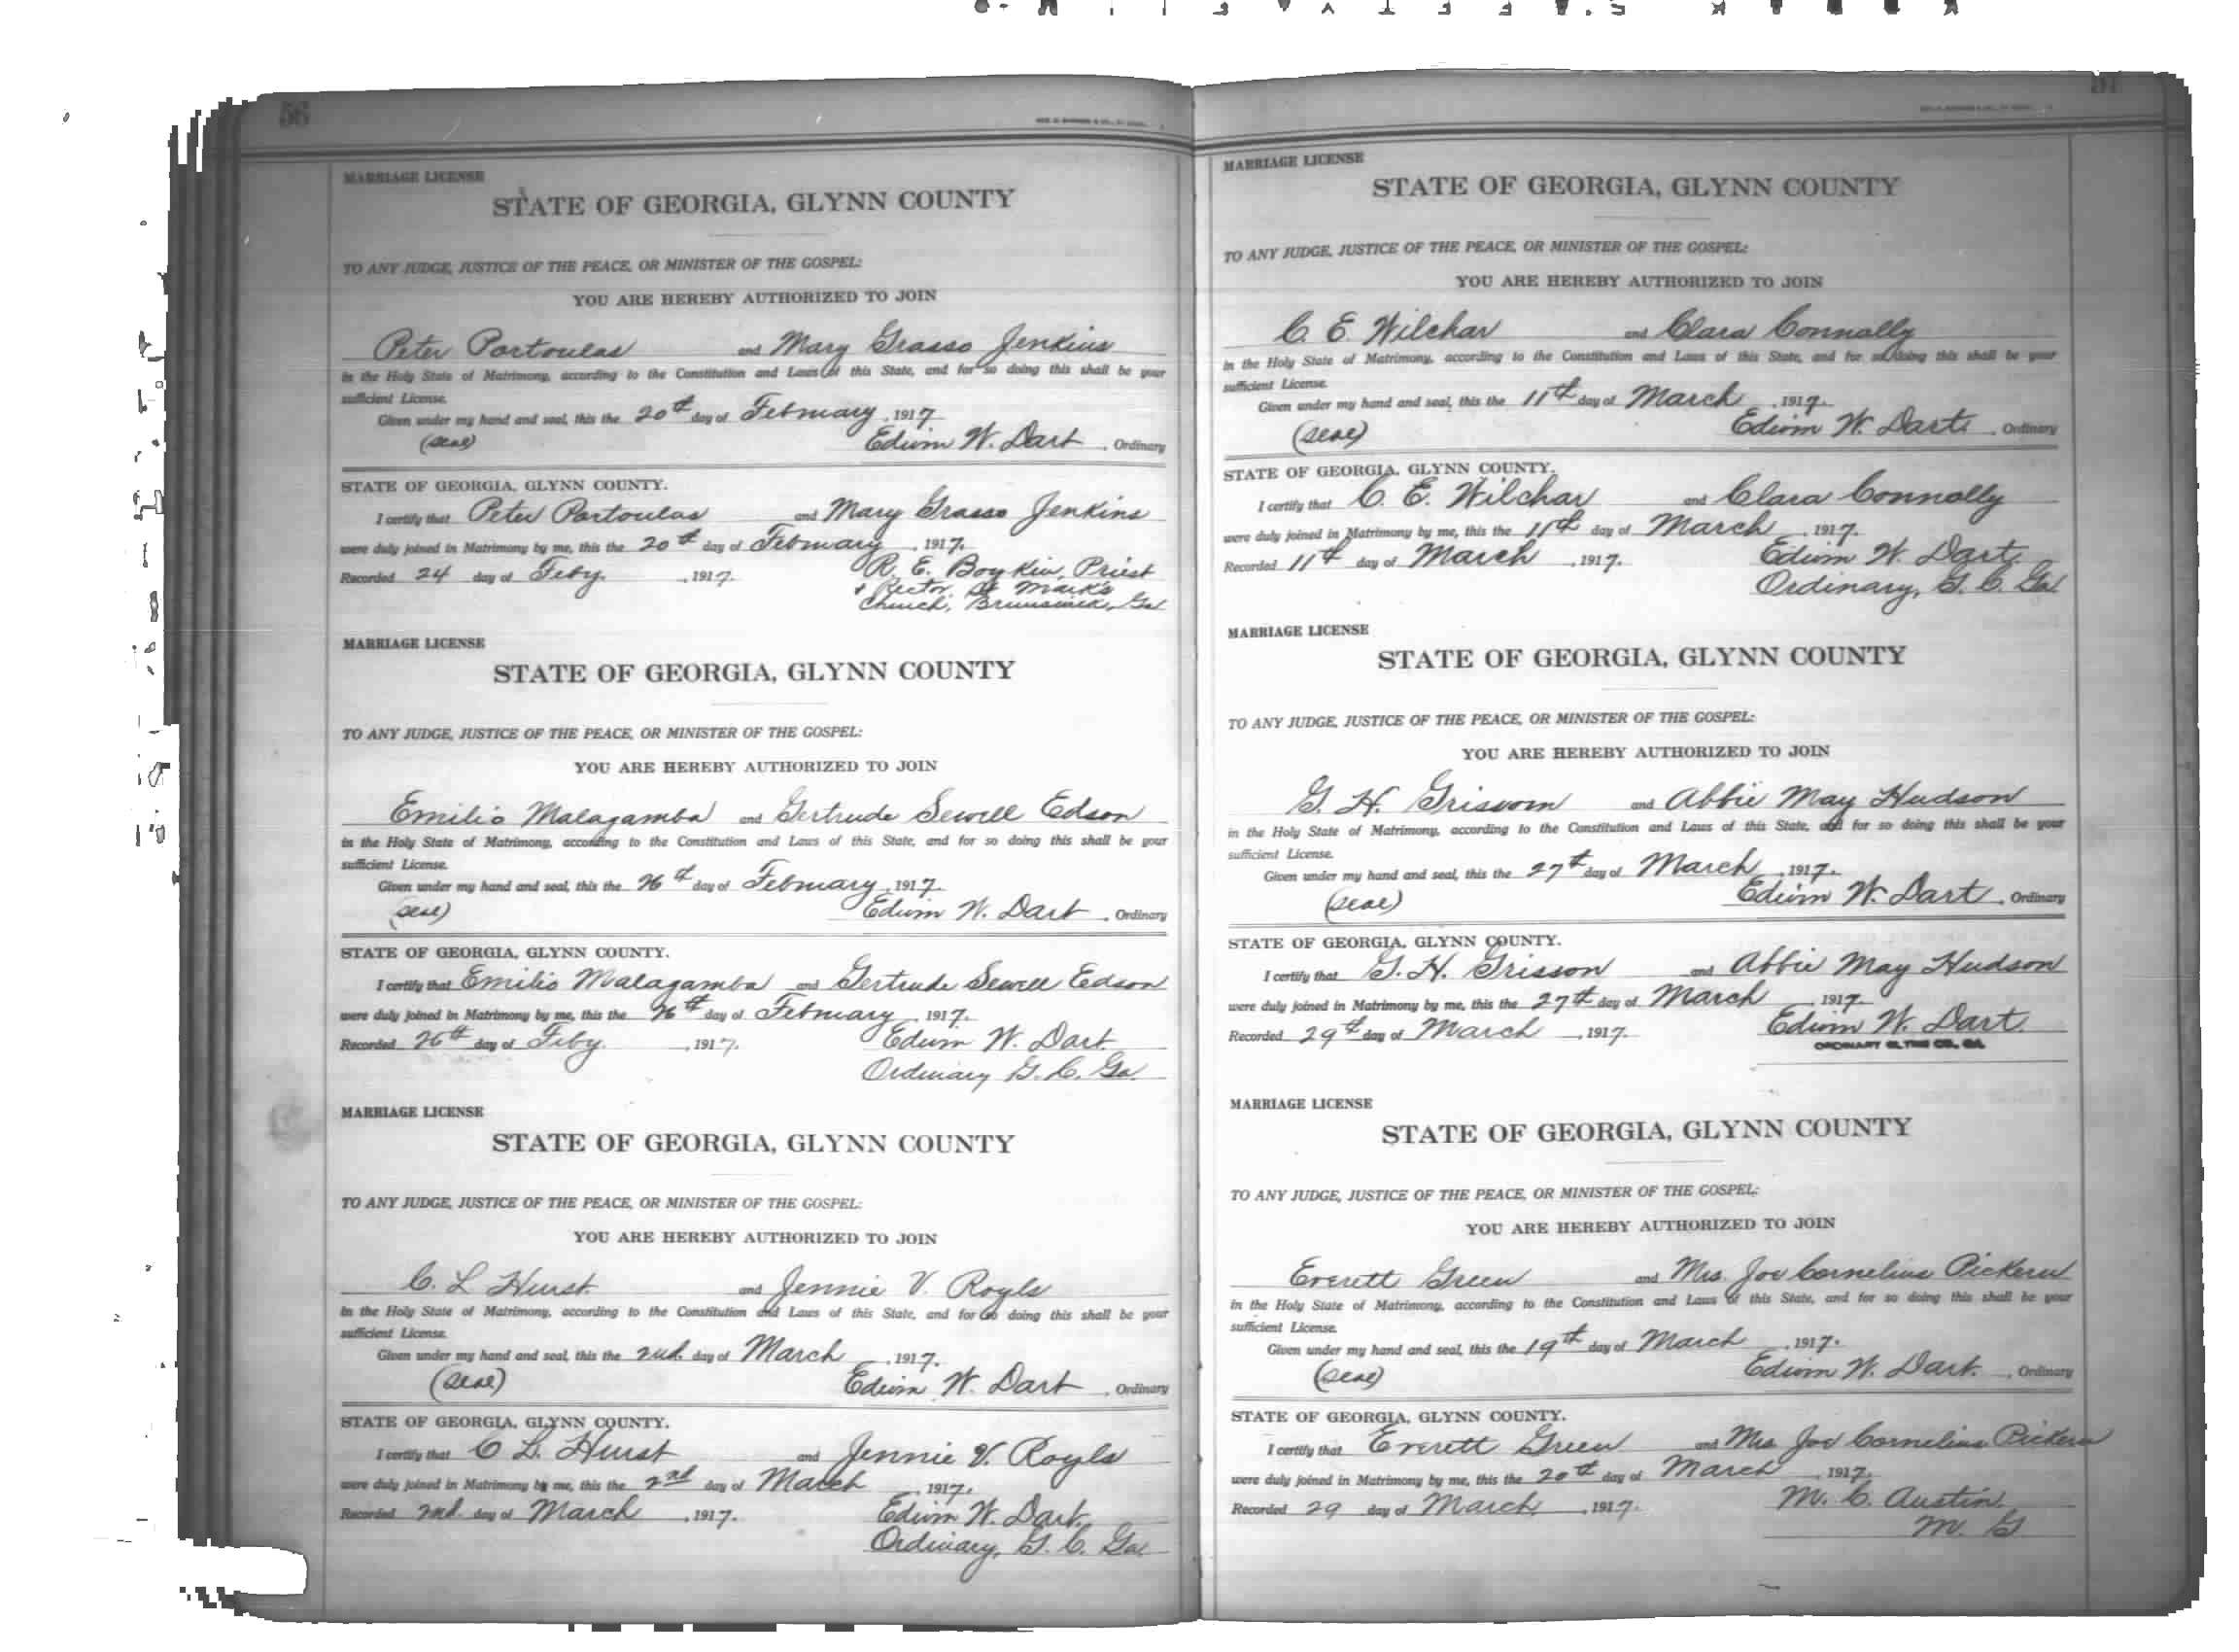 56
MARRIAGE LICENSE
STATE OF GEORGIA, GLYNN COUNTY
TO ANY JUDGE, JUSTICE OF THE PEACE, OR MINISTER OF THE GOSPEL:
YOU ARE HEREBY AUTHORIZED TO JOIN
Peter Portoulas and Mary Grasso Jenkins
in the Holy State of Matrimony, according to the Constitution and Laws of this State, and for so doing this shall be your
sufficient License.
Given under my hand and seal, this the 20th day of February, 1917.
(seal) Edwin W. Dart, Ordinary
STATE OF GEORGIA, GLYNN COUNTY.
I certify that Peter Portoulas and Mary Grasso Jenkins
were duly joined in Matrimony by me, this the 20th day of February, 1917.
Recorded 24 day of Feby., 1917. R. E. Boykin, Priest
& Rector, St Mark's
Church, Brunswick, Ga
MARRIAGE LICENSE
STATE OF GEORGIA, GLYNN COUNTY
TO ANY JUDGE, JUSTICE OF THE PEACE, OR MINISTER OF THE GOSPEL:
YOU ARE HEREBY AUTHORIZED TO JOIN
Emilio Malagamba and Gertrude Sewell Edson
in the Holy State of Matrimony, according to the Constitution and Laws of this State, and for so doing this shall be your
sufficient License.
Given under my hand and seal, this the 26th day of February, 1917.
(seal) Edwin W. Dart, Ordinary
STATE OF GEORGIA, GLYNN COUNTY.
I certify that Emilio Malagamba and Gertrude Sewell Edson
were duly joined in Matrimony by me, this the 26th day of February, 1917.
Recorded 26th day of Feby., 1917. Edwin W. Dart
Ordinary G. C. Ga.
MARRIAGE LICENSE
STATE OF GEORGIA, GLYNN COUNTY
TO ANY JUDGE, JUSTICE OF THE PEACE, OR MINISTER OF THE GOSPEL:
YOU ARE HEREBY AUTHORIZED TO JOIN
C. L Hurst. and Jennie V. Royls
in the Holy State of Matrimony, according to the Constitution and Laws of this State, and for so doing this shall be your
sufficient License.
Given under my hand and seal, this the 2nd. day of March, 1917.
(seal) Edwin W. Dart, Ordinary
STATE OF GEORGIA, GLYNN COUNTY.
I certify that C L. Hurst and Jennie V. Royls
were duly joined in Matrimony by me, this the 2nd day of March, 1917.
Recorded 2nd. day of March, 1917. Edwin W. Dart,
Ordinary, G. C. Ga.
MARRIAGE LICENSE
STATE OF GEORGIA, GLYNN COUNTY
TO ANY JUDGE, JUSTICE OF THE PEACE, OR MINISTER OF THE GOSPEL:
YOU ARE HEREBY AUTHORIZED TO JOIN
C. E. Wilchar and Clara Connally
in the Holy State of Matrimony, according to the Constitution and Laws of this State, and for so doing this shall be your
sufficient License.
Given under my hand and seal, this the 11th day of March, 1917.
(seal) Edwin W. Dart, Ordinary
STATE OF GEORGIA, GLYNN COUNTY.
I certify that C. E. Wilchar and Clara Connally
were duly joined in Matrimony by me, this the 11th day of March, 1917.
Recorded 11th day of March, 1917. Edwin W. Dart.
Ordinary, G. C. Ga
MARRIAGE LICENSE
STATE OF GEORGIA, GLYNN COUNTY
TO ANY JUDGE, JUSTICE OF THE PEACE, OR MINISTER OF THE GOSPEL:
YOU ARE HEREBY AUTHORIZED TO JOIN
G. H. Grissom and Abbie May Hudson
in the Holy State of Matrimony, according to the Constitution and Laws of this State, and for so doing this shall be your
sufficient License.
Given under my hand and seal, this the 27th day of March, 1917.
(seal) Edwin W. Dart, Ordinary
STATE OF GEORGIA, GLYNN COUNTY.
I certify that G. H. Grisson and Abbie May Hudson
were duly joined in Matrimony by me, this the 27th day of March, 1917.
Recorded 29th day of March, 1917. Edwin W. Dart
ORDINARY GLYNN CO., GA.
MARRIAGE LICENSE
STATE OF GEORGIA, GLYNN COUNTY
TO ANY JUDGE, JUSTICE OF THE PEACE, OR MINISTER OF THE GOSPEL:
YOU ARE HEREBY AUTHORIZED TO JOIN
Everett Green and Mrs. Joe Cornelius Pickern
in the Holy State of Matrimony, according to the Constitution and Laws of this State, and for so doing this shall be your
sufficient License.
Given under my hand and seal, this the 19th day of March, 1917.
(seal) Edwin W. Dart., Ordinary
STATE OF GEORGIA, GLYNN COUNTY.
I certify that Everett Green and Mrs Joe Cornelius Pickern
were duly joined in Matrimony by me, this the 20th day of March, 1917.
Recorded 29 day of March, 1917. M. C. Austin,
M. G